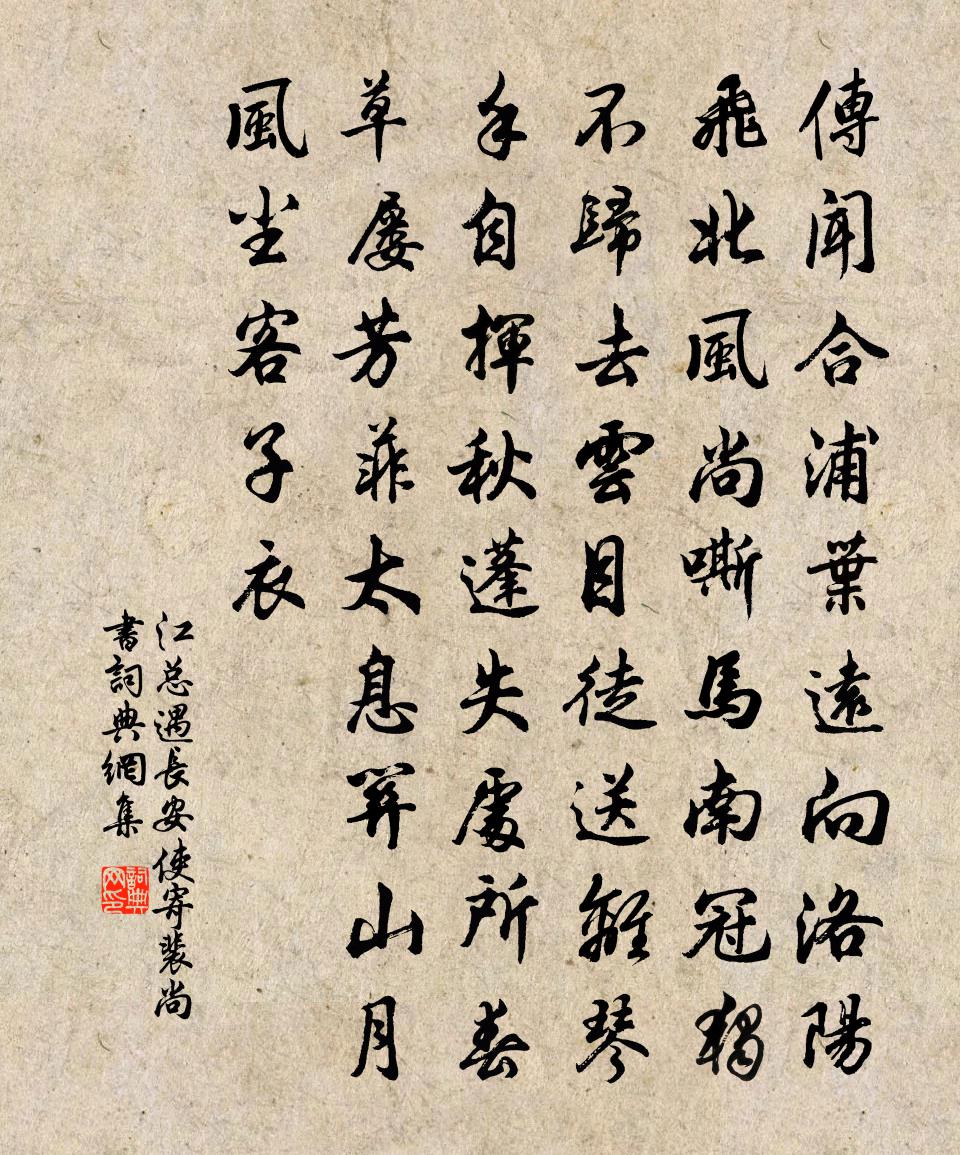 傳聞合浦葉遠向洛陽
飛北風尚嘶馬南冠獨
不歸去雲目徒送離琴
手自揮秋蓬失處所春
草屢芳菲太息關山月
風尘客子衣
江总遇長安使寄裴尚
書詞典網集
詞典网印